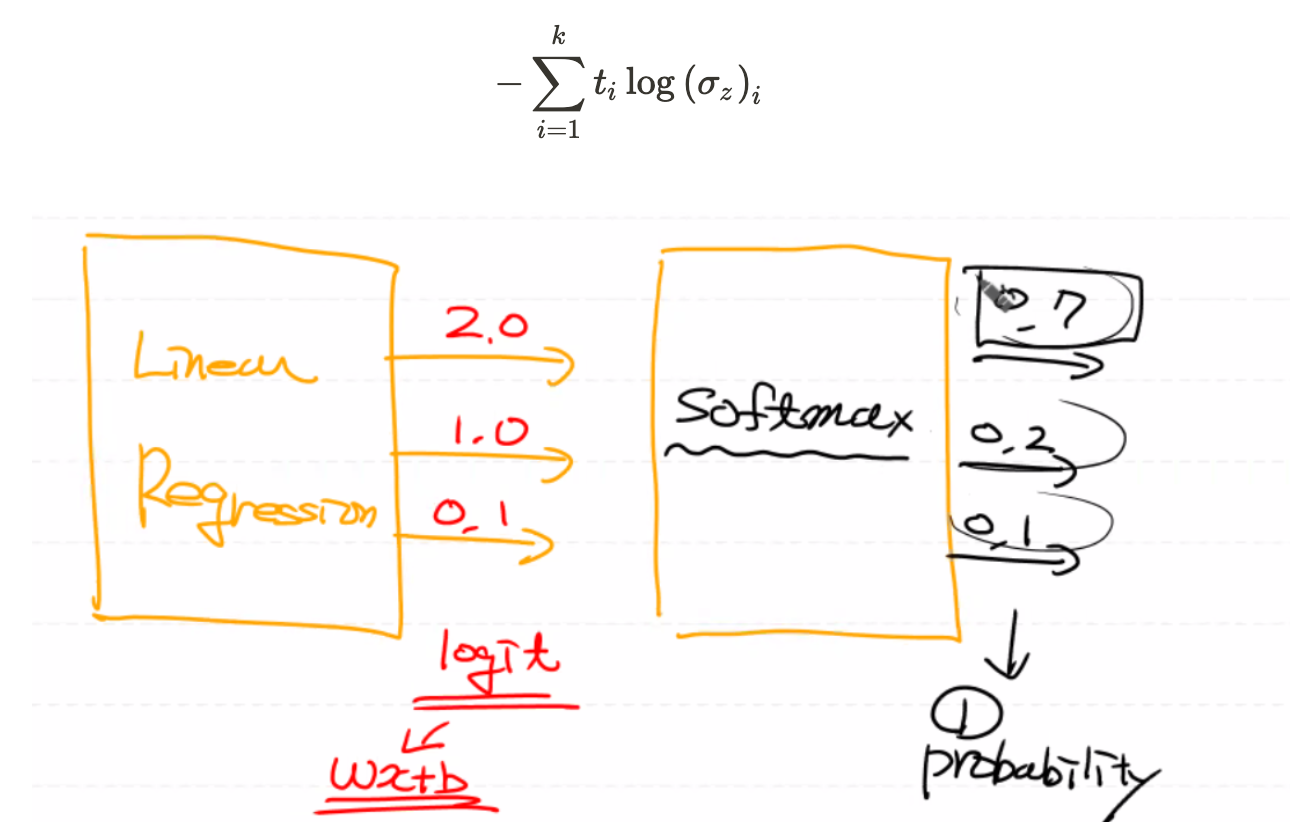 $-\sum_{i=1}^{k} t_i \log (\sigma_z)_i$
Linear
Regression
2.0
1.0
0.1
logit
wx+b
Softmax
0.7
0.2
0.1
①
probability